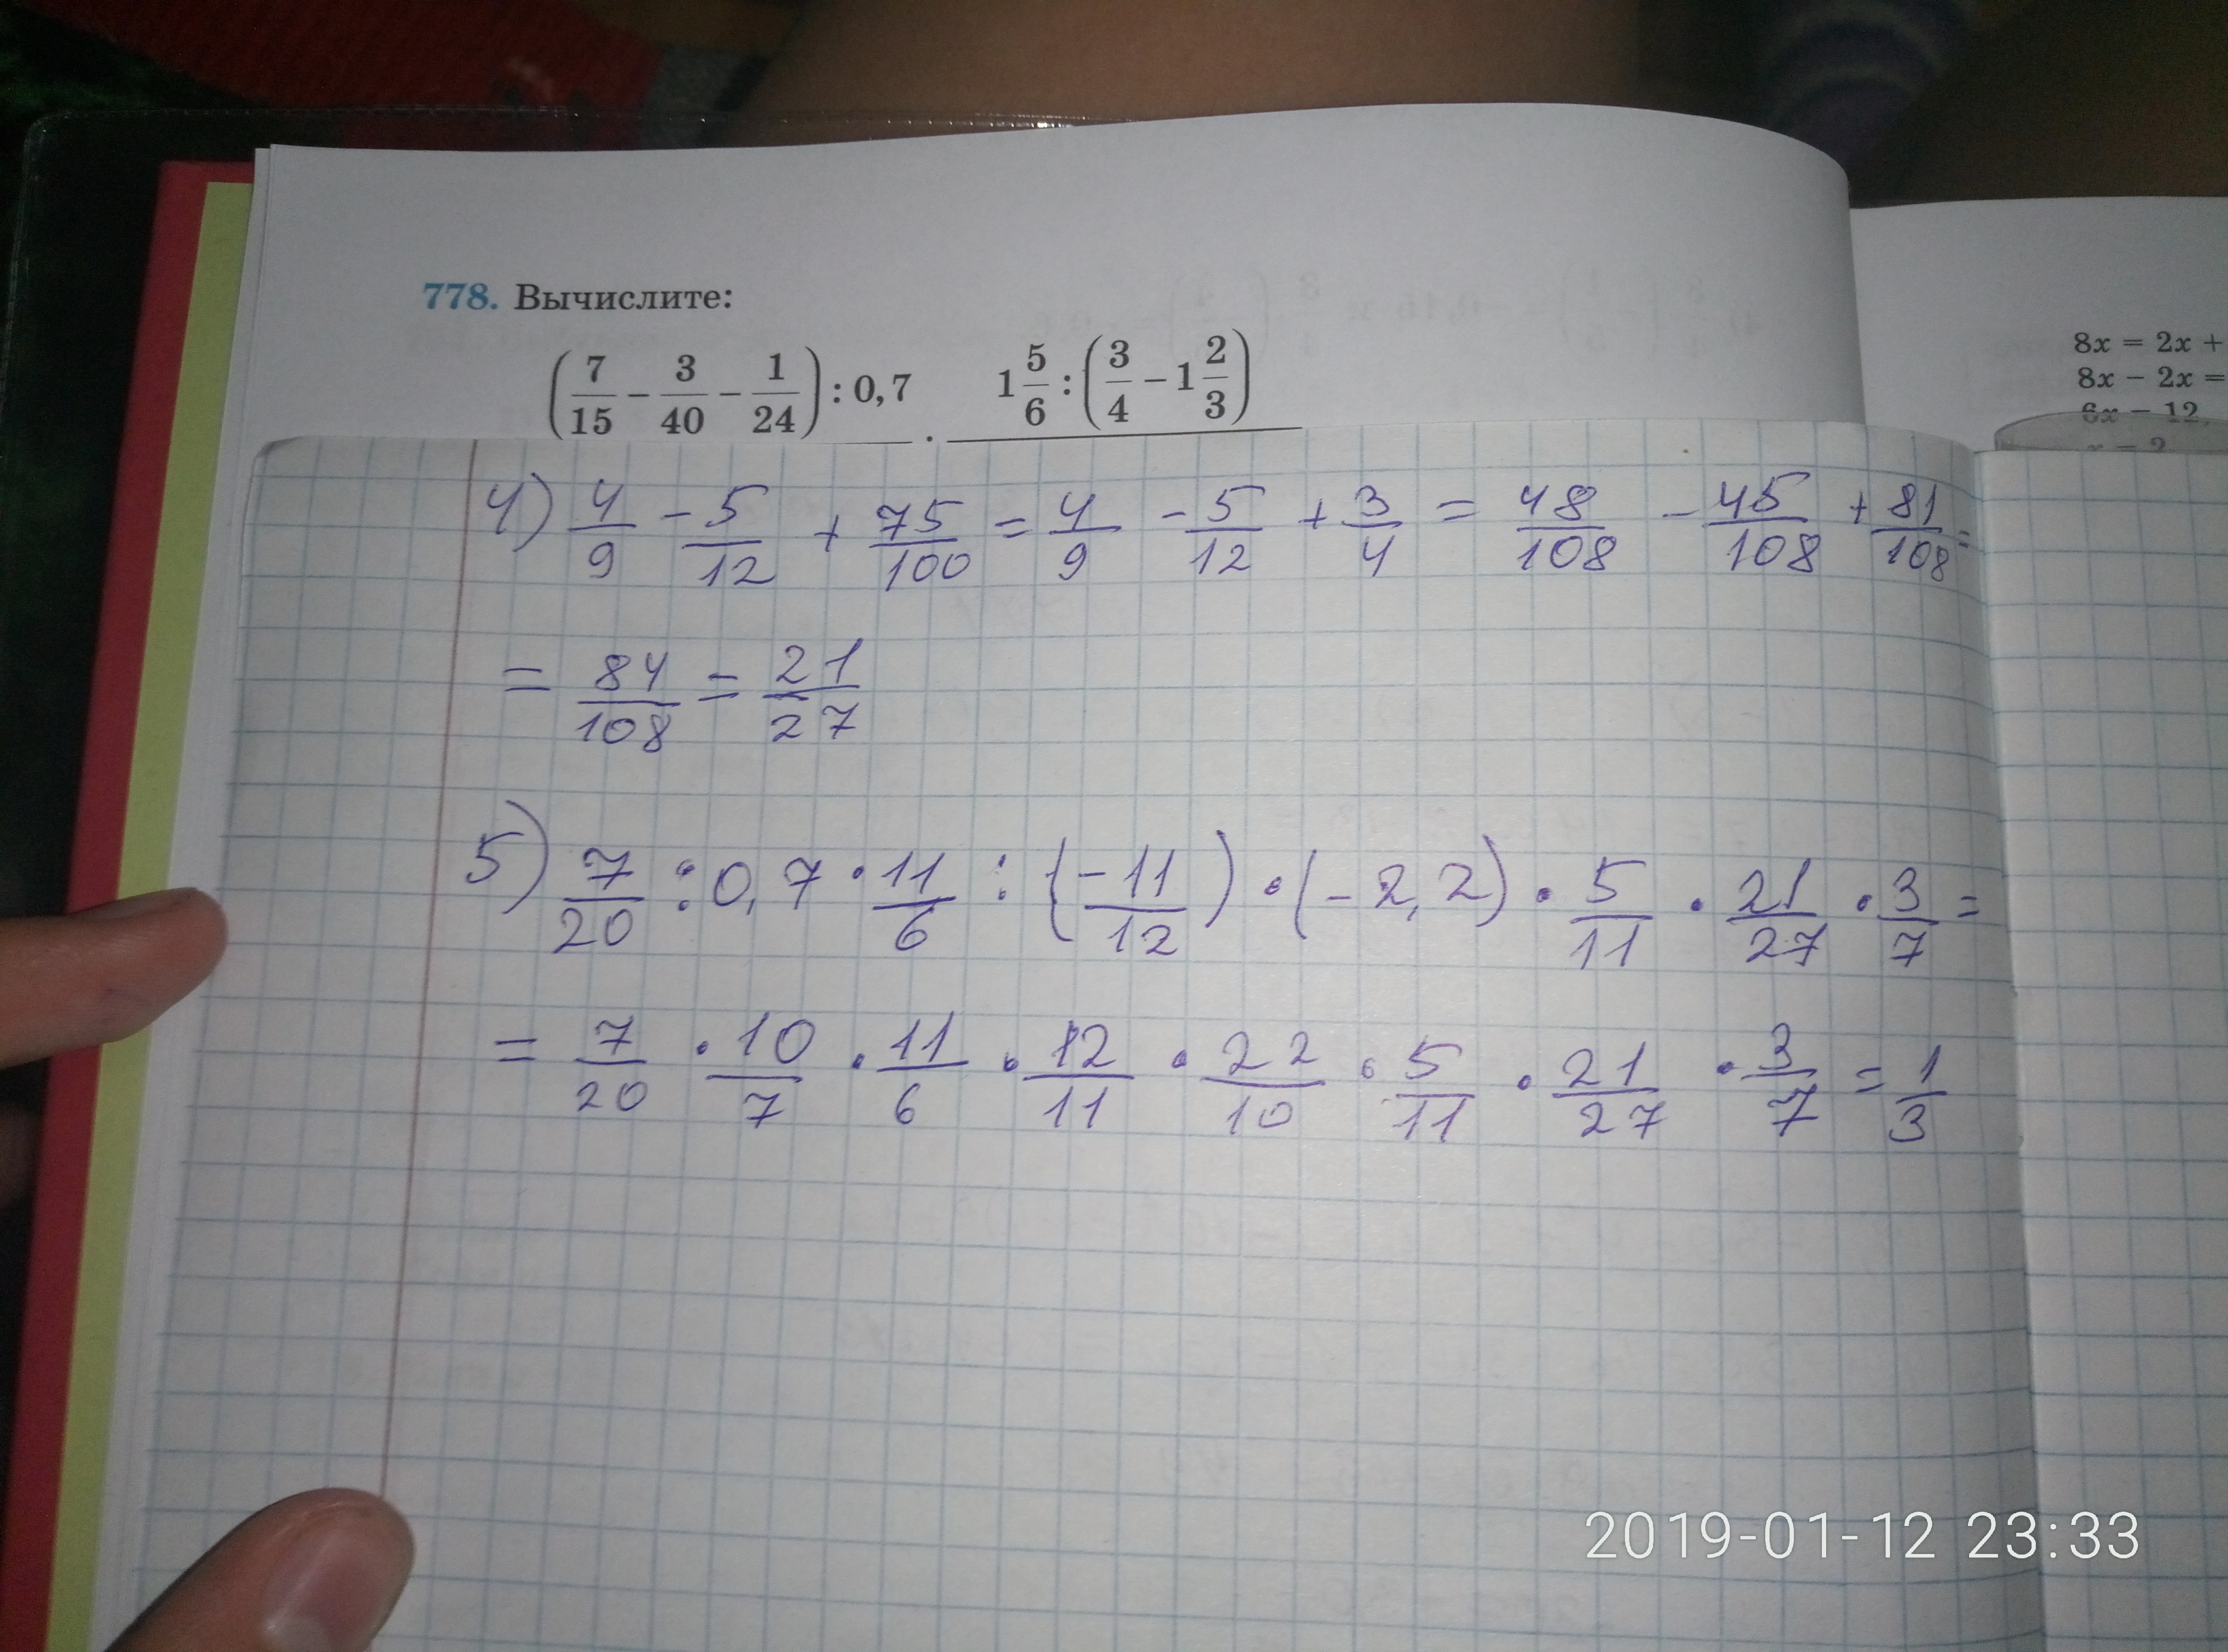 778. Вычислите:
(7/15 − 3/40 − 1/24) : 0,7 · 1 5/6 : (3/4 − 1 2/3)
8x = 2x +
8x − 2x =
6x = 12,
x = 2
4) 4/9 − 5/12 + 75/100 = 4/9 − 5/12 + 3/4 = 48/108 − 45/108 + 81/108 =
= 84/108 = 21/27
5) 7/20 : 0,7 · 11/6 : (−11/12) · (−2,2) · 5/11 · 21/27 · 3/7 =
= 7/20 · 10/7 · 11/6 · 12/11 · 22/10 · 5/11 · 21/27 · 3/7 = 1/3
2019-01-12 23:33